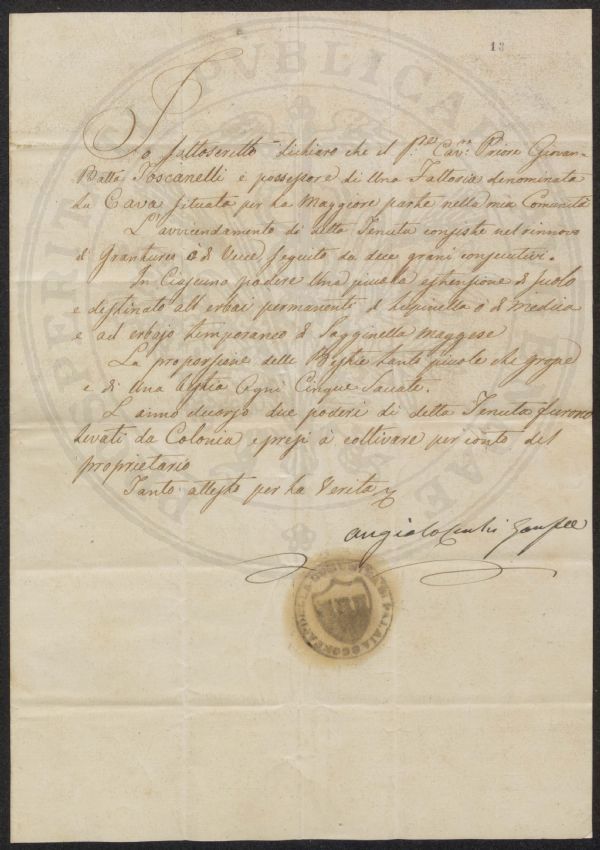 13
Io sottoscritto dichiaro che il Sre. Cav:re Priore Giovan
Batta Toscanelli è possessore di Una Fattoria denominata
La Cava situata per la Maggiore parte nella mia Comunità
L'avvicendamento di detta Tenuta consiste nel rinnovo
di Granturco o di Vecce seguito da due grani consecutivi.
In Ciascuno podere Una piccola estensione di suolo
e destinato all'erbai permanenti di Lupinella o di Medica
e ad erbajo temporaneo di Sagginella Maggese
La proporzione delle Bestie tanto piccole che grosse
e di Una Ogni Cinque Saccate.
L'anno decorso due poderi di detta Tenuta furono
levati da Colonia e presi à coltivare per conto del
proprietario
Tanto attesto per la Verità
Angiolo
DELLA COMUNITÀ DI PALAIA